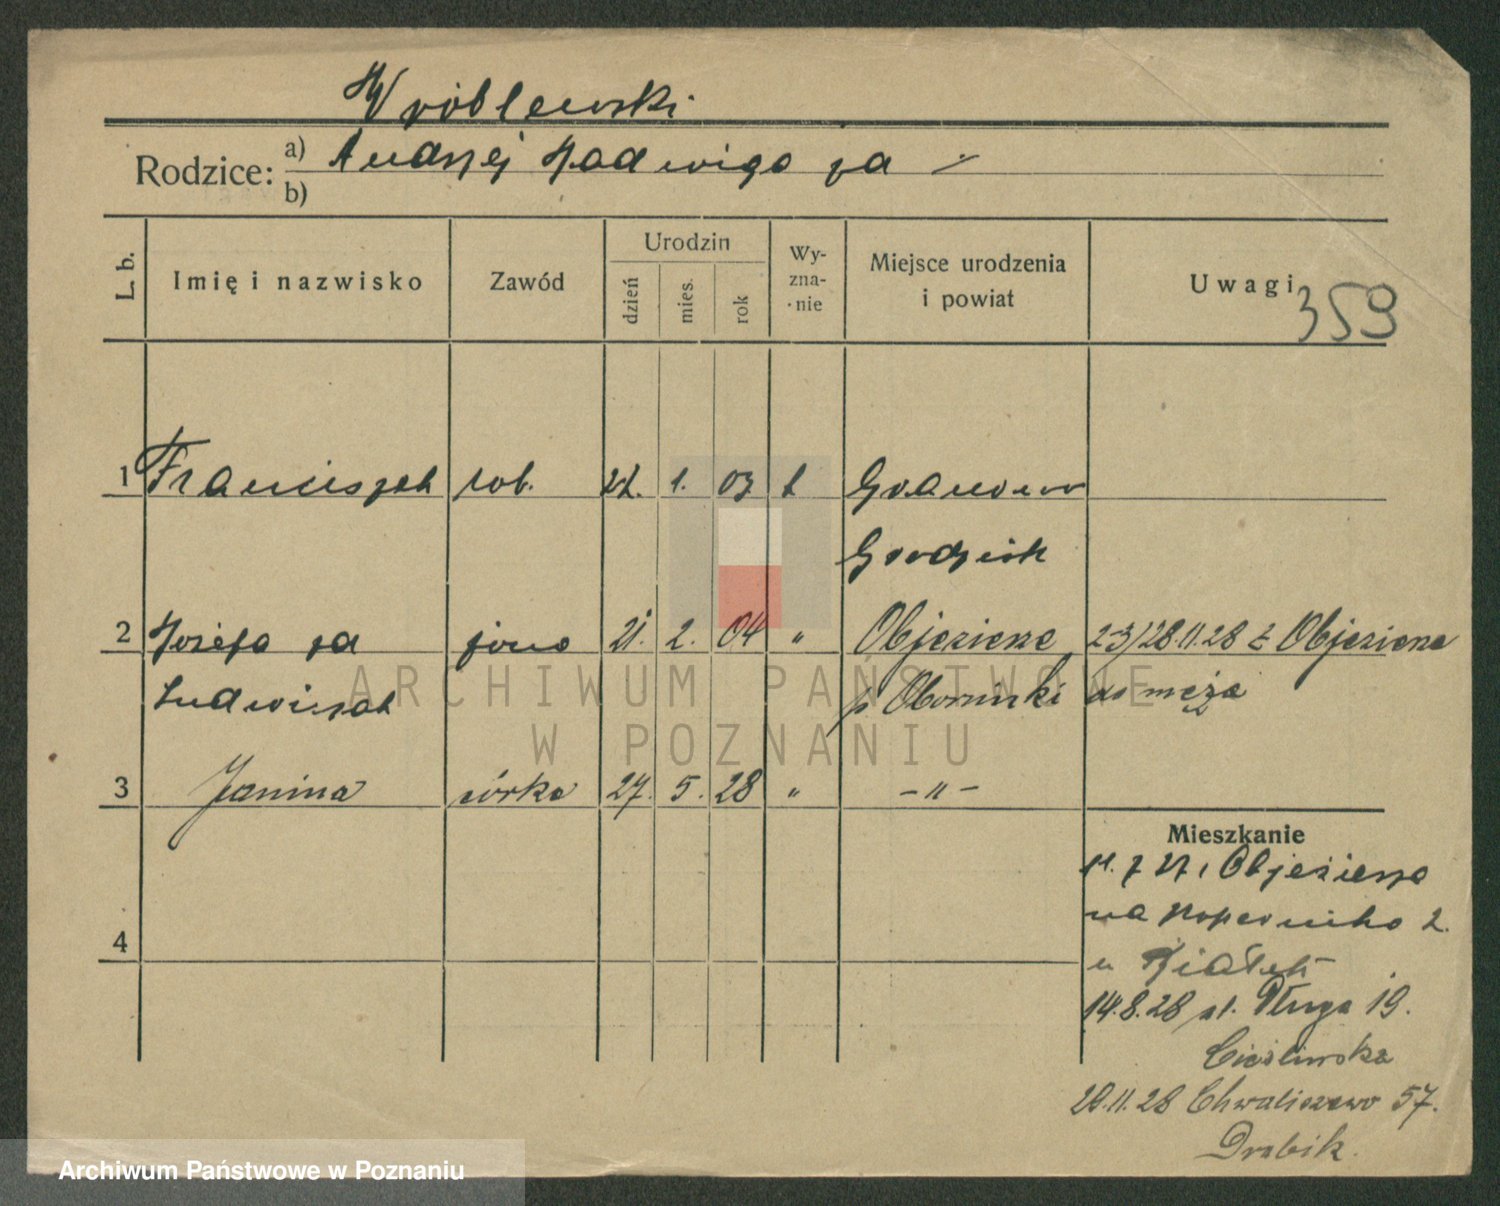 Wróblewski
Rodzice: a) Andrzej Jadwiga zd
b)
L. b.
Imię i nazwisko
Zawód
Urodzin
dzień
mies.
rok
Wy-
zna-
nie
Miejsce urodzenia
i powiat
Uwagi
359
1 Franciszek rob. 22. 1. 03 k Granowo
Grodzisk
2 Józefa zd żona 21. 2. 04 " Objezierze 23/28.11.28 z Objezierza
Ludwiczak p. Obornicki do męża
3 Janina córka 27. 5. 28 " - " -
4
Mieszkanie
Objezierza
na Kopernika 2.
u Białek
14.8.28 ul. Długa 19.
Cieślińska
28.11.28 Chwaliszewo 57.
Drabik.
ARCHIWUM PAŃSTWOWE
W POZNANIU
Archiwum Państwowe w Poznaniu